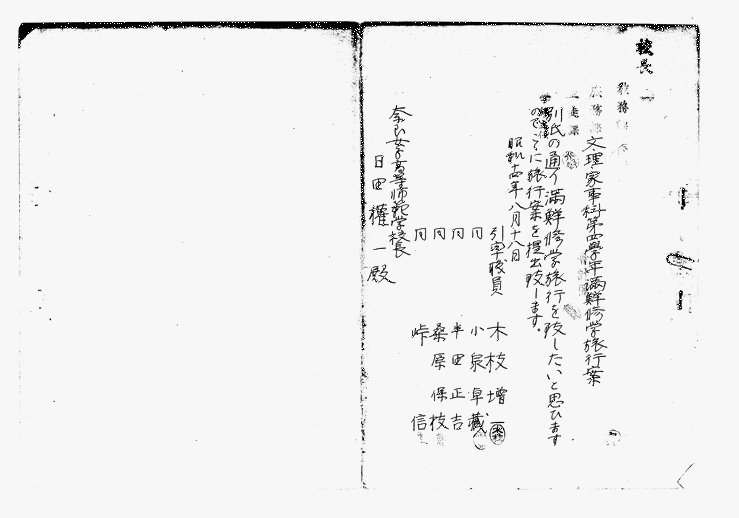 校長
教務
庶務課
文、理、家事科第四学年満鮮修学旅行案
別紙の通り満鮮修学旅行を致したいと思ひます
のでこゝに旅行案を提出致します。
昭和十四年八月十八日
引率職員 木枝増一
同 小泉卓蔵
同 半田正吉
同 桑原保枝
同 峠信
奈良女子高等師範学校長
日田権一殿